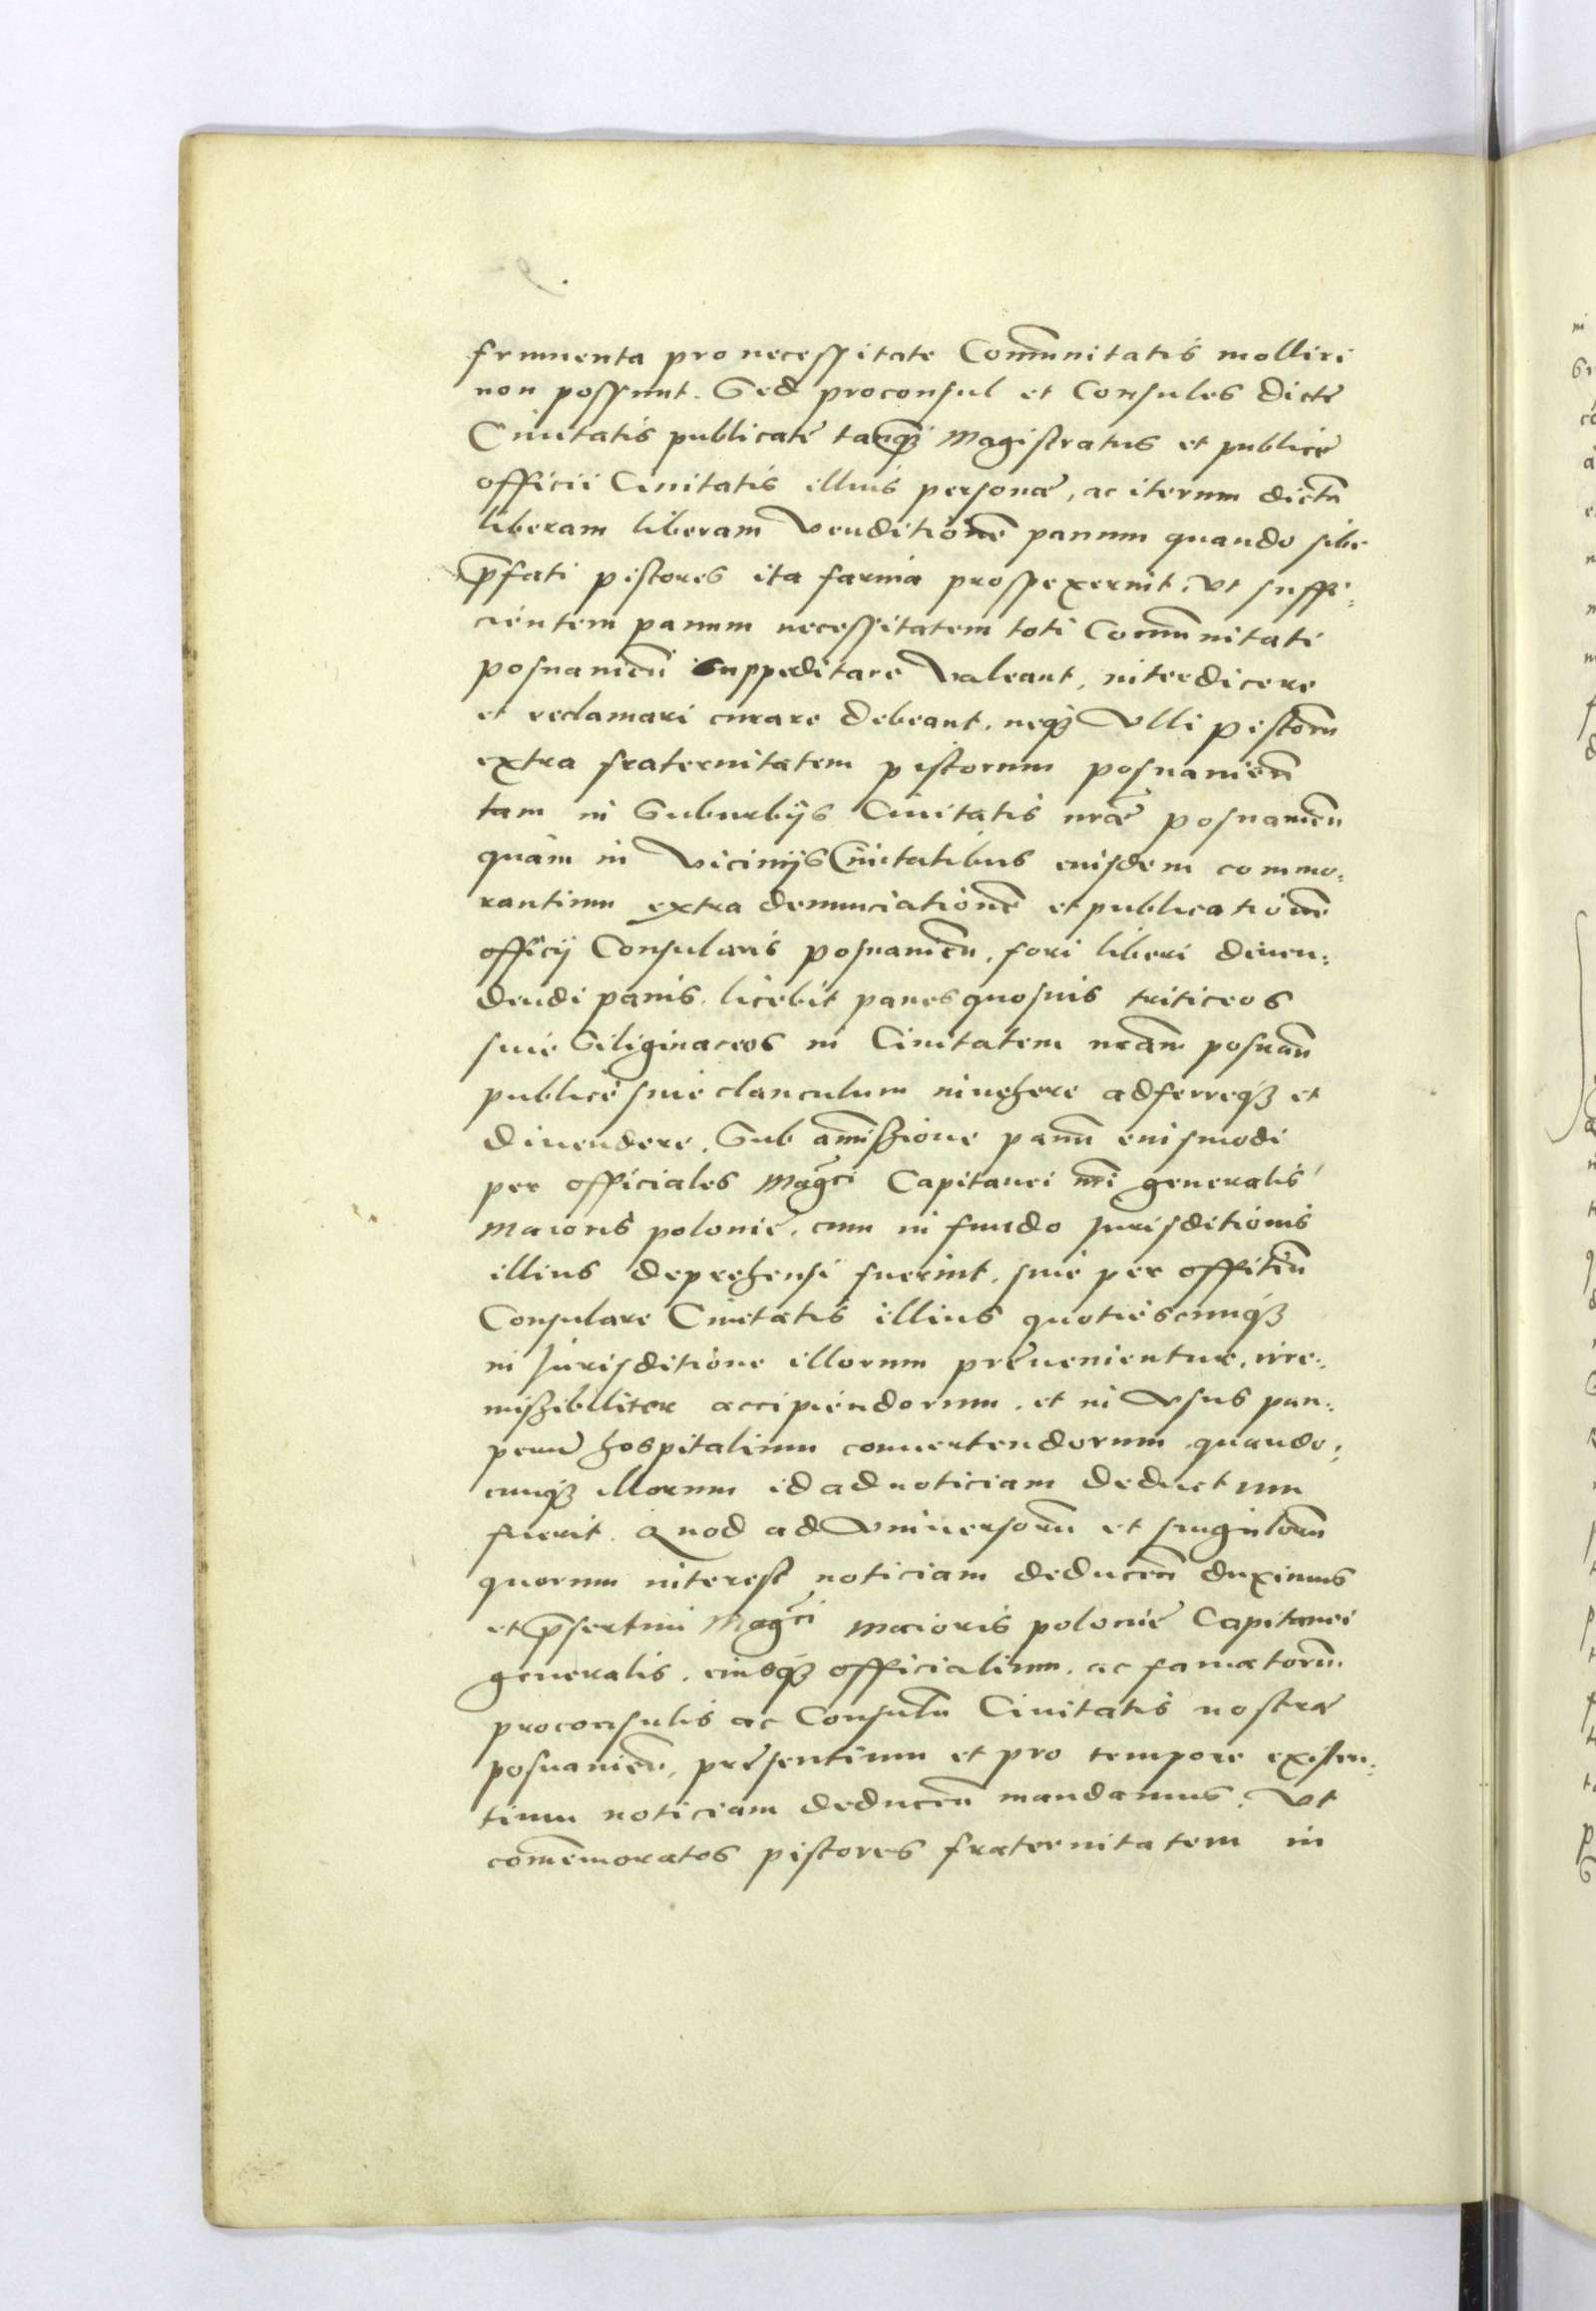 frumenta pro necessitate Com̃unitatis molliri
non possunt. Sed proconsul et Consules dictę
Ciuitatis publicatę tanq̃ Magistratus et publicę
officii Ciuitatis illius personæ, ac iterum dictã
liberam liberam Venditionẽ panum quando sibi
p̃fati pistores ita farina prospexerint, Vt suffi:
cientem panum necessitatem toti Com̃unitati
posnanieñ suppeditare Valeant, interdicere
et reclamari curare debeant, neq3 Vlli pistorũ
extra fraternitatem pistorum posnanieñ
tam in Suburbijs Ciuitatis nrae posnanieñ
quàm in Vicinijs Ciuitatibus eiusdem commo:
rantium extra denunciationẽ et publicationẽ
officij Consularis posnanieñ, fori liberi diuen:
dendi panis, licebit panes quosuis triticeos
siue Siliginaceos in Ciuitatem nram posnañ
publicè siue clanculum inuehere adferreq3 et
diuendere, Sub amißione panũ eiusmodi
per officiales Magci Capitanei nri generalis
Maioris polonię, cum in fundo Jurisditionis
illius deprehensi fuerint, siue per offitiũ
Consulare Ciuitatis illius quotiescunq3
in Jurisditione illorum preuenientur, irre:
mißibiliter accipiendorum, et in Vsus pau:
perũ hospitalium conuertendorum quando:
cunq3 illorum id ad noticiam deductum
fuerit. Quod ad Vniuersorũ et singulorũ
quorum interest noticiam deduceñ duximus
et p̃sertim Magci Maioris polonię Capitanei
generalis, eiusq3 officialium, ac famatorũ
proconsulis ac Consulũ Ciuitatis nostræ
posnanieñ, pręsentium et pro tempore existen:
tium noticiam deduceñ mandamus, Vt
com̃emoratos pistores fraternitatem in